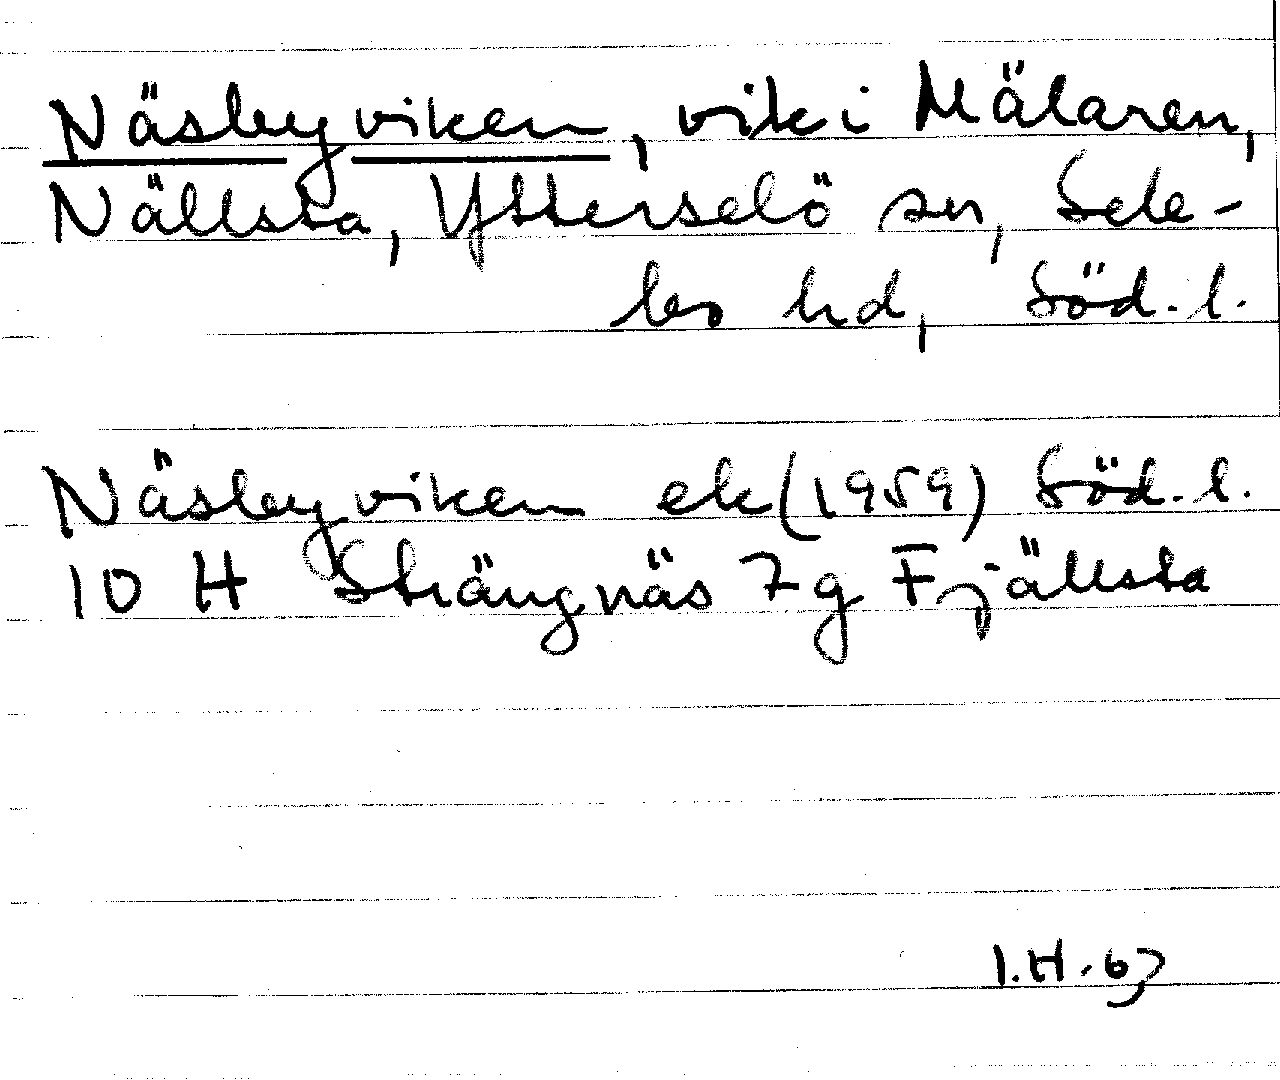 Näsbyviken, vik i Mälaren,
Nällsta, Ytterselö sn, Sele-
bo hd, Söd.l.
Näsbyviken ek (1959) Söd.l.
10 H Strängnäs 7g Fjällsta
I.H.67